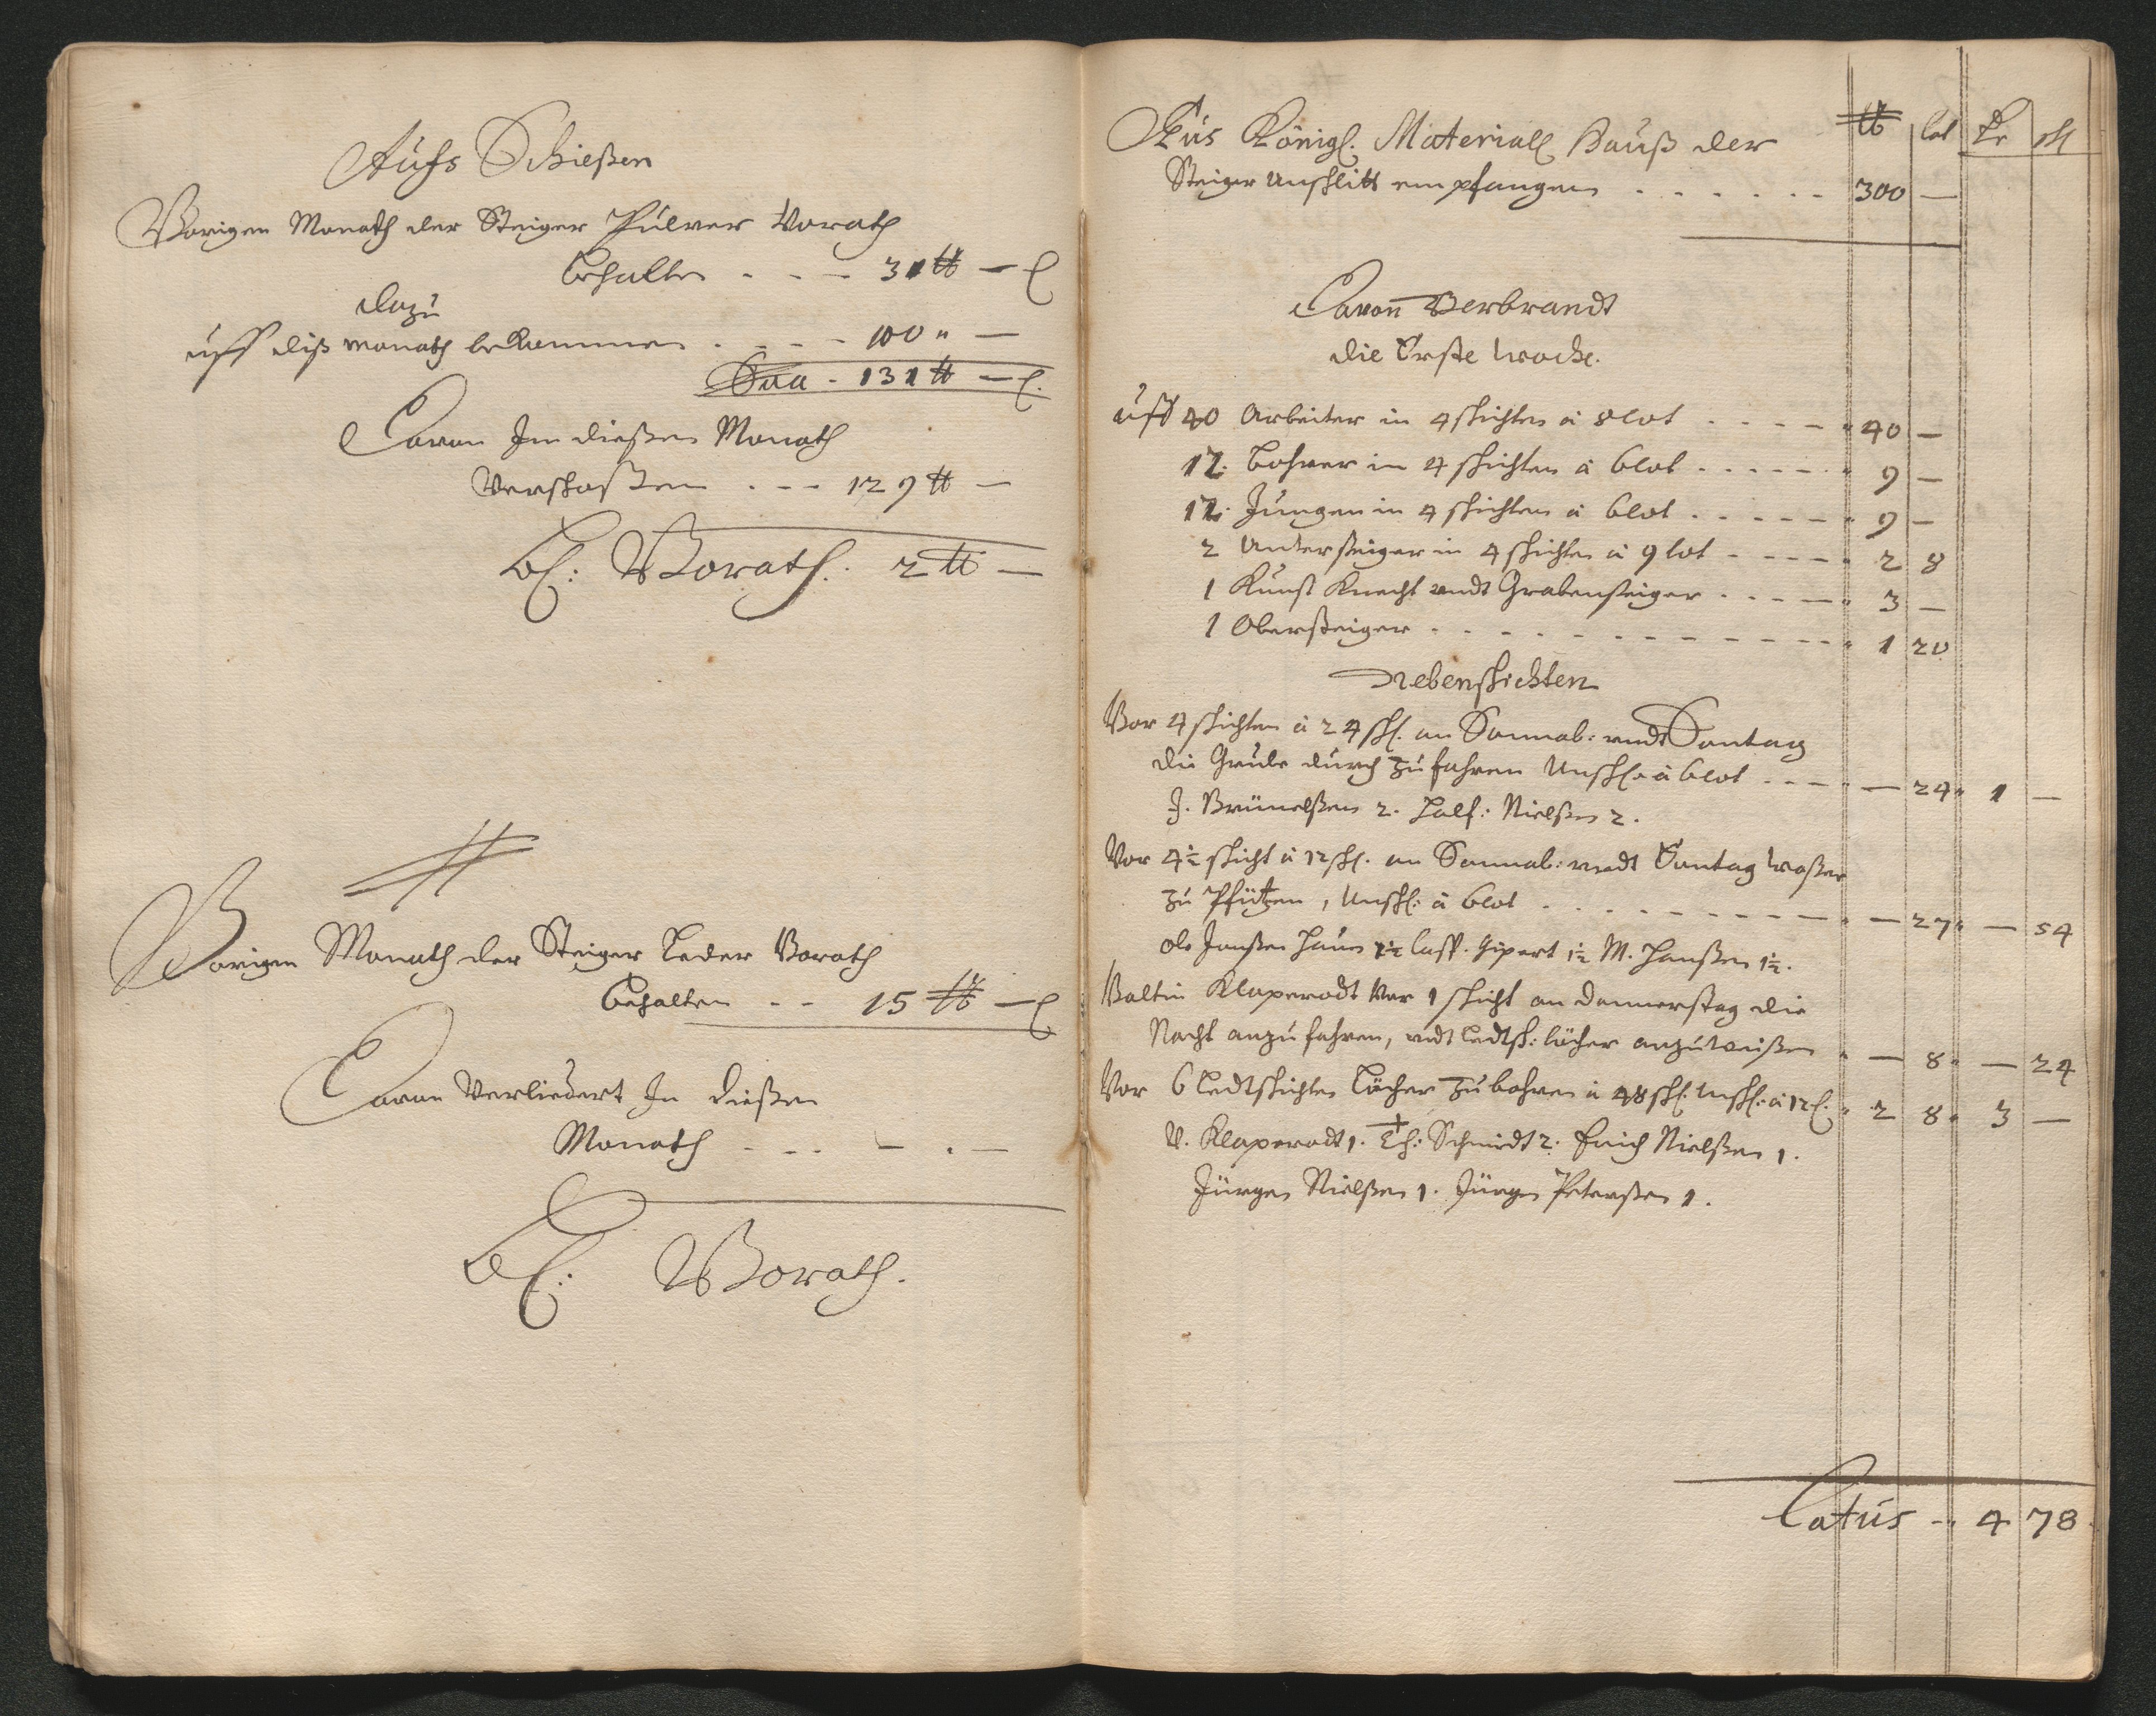 Aufs Schießen
Vorigen Monath der Steiger Pulver Vorath
behalten - - - 31 ℔ — l
dazu
uff diß monath bekommen . - - - 100 " —
Sua - 131 ℔ — l.
Davon Inn dießen Monath
Verschoßen . - - 129 ℔ —
bl: Vorath. 2 ℔ —
Vorigen Monath der Steiger Leder Vorath
behalten - - 15 ℔ — l
Davon Verliedert In dießen
Monath - - - — . —
bl: Vorath.
Aus Königl. Materiall Hauß der ℔ lot
Steiger Unschlitt empfangen . . . . . . 300 —
Davon Verbrandt
die Erste woche.
uff 40 Arbeiter in 4 schichten â 8 lot . . . . - " 40 —
12. Bohrer in 4 schichten â 6 lot . . . . . " 9 —
12. Jungen in 4 schichten â 6 lot . . . . . " 9 —
2 Untersteiger in 4 schichten â 9 lot - - - - " 2 8
1 Kunst Knecht undt Grabensteiger . . . - " 3 —
1 Obersteiger . . . . . . . . . . . . " 1 20
Nebenschichten
Vor 4 schichten â 24 schl. an Sonnab: undt Sontag
die Grube durch zu fahren Unschl: â 6 lot . . . — 24 " 1 —
J. Brünelßen 2. Half: Nielßen 2.
Vor 4½ schicht â 12 schl. an Sonnab: undt Sontag waßer
zu Pfützen, Unschl: â 6 lot . . . . . . . . . — 27 " — 54
Ole Janßen 1½ M. Hanßen 1½.
Valtin Klaperodt Vor 1 schicht an donnerstag die
Nacht anzufahren, undt ledtsch: löcher anzuweißen " — 8 " — 24
Vor 6 ledtschichten Löcher zu bohren â 48 schl. Unschl: â 12 l. " 2 8 " 3 —
V. Klaperodt 1. Ch: Schmidt 2. Erich Nielßen 1.
Jürgen Nielßen 1. Jürgen Peterßen 1.
Latus - " 4 78